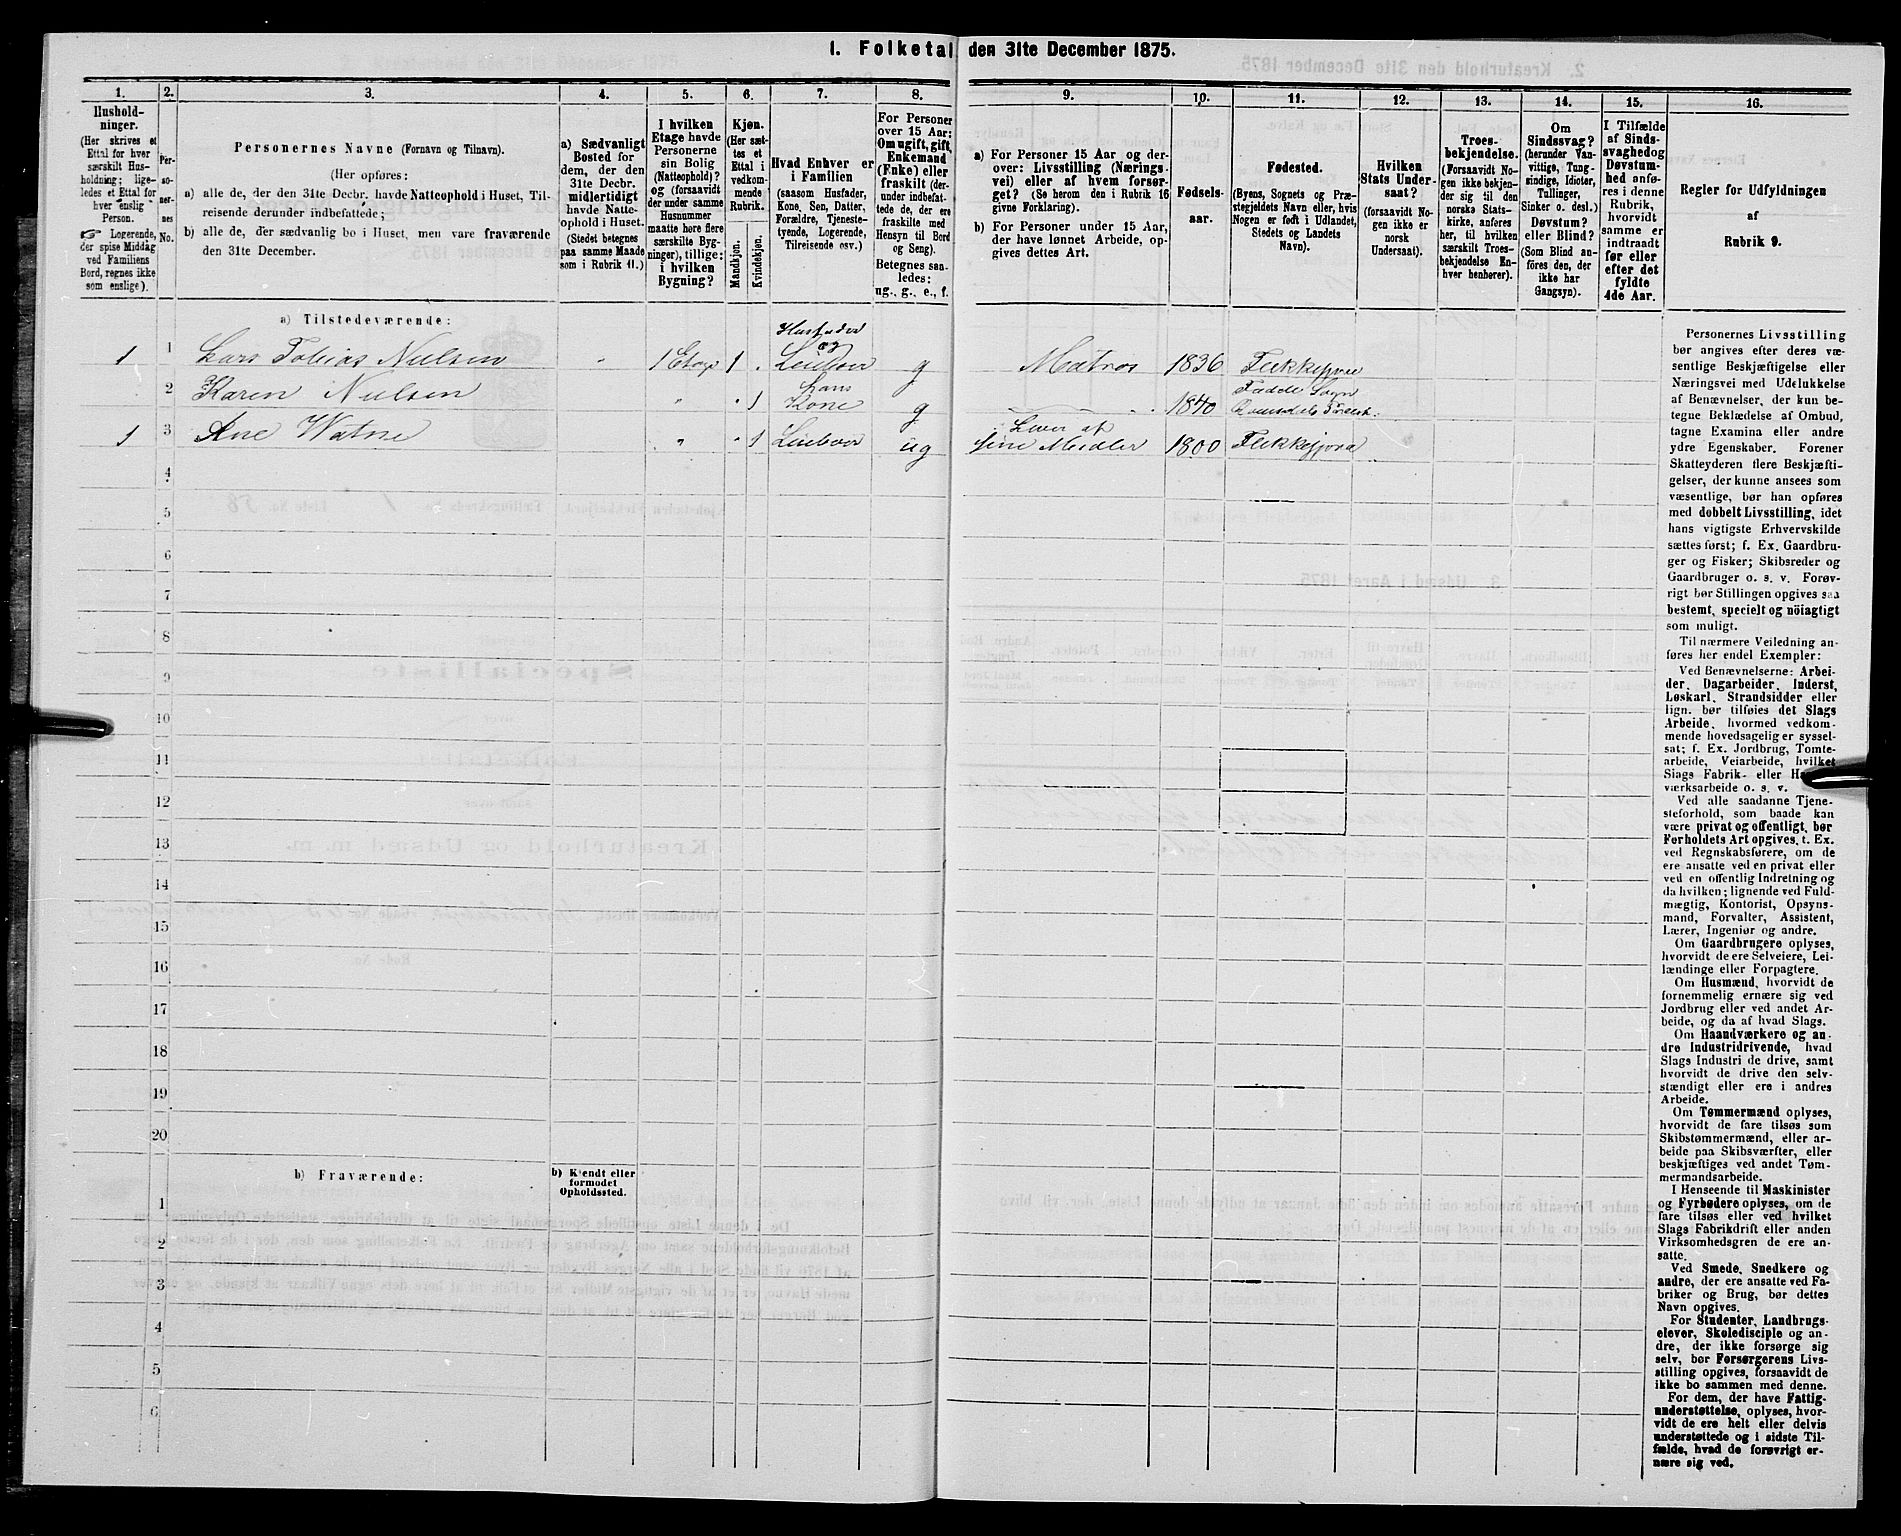 1. Folketal den 31te December 1875.
1. 2. 3. 4. 5. 6. 7. 8. 9. 10. 11. 12. 13. 14. 15. 16.
Hushold-
ninger.
(Her skrives et
Ettal for hver
særskilt Hus-
holdning; lige-
ledes et Ettal for
hver enslig
Person.
☞ Logerende,
der spise Middag
ved Familiens
Bord, regnes ikke
som enslige).
Per-
so-
ner-
nes
No.
Personernes Navne (Fornavn og Tilnavn).
(Her opføres:
a) alle de, der den 31te Decbr. havde Natteophold i Huset, Til-
reisende derunder indbefattede;
b) alle de, der sædvanlig bo i Huset, men vare fraværende
den 31te December.
a) Sædvanligt
Bosted for
dem, der den
31te Decbr.
midlertidigt
havde Natte-
ophold i Huset.
(Stedet betegnes
paa samme Maade
som i Rubrik 11.)
I hvilken
Etage havde
Personerne
sin Bolig
(Natteophold)?
og (forsaavidt
der under samme
Husnummer
maatte høre flere
særskilte Byg-
ninger), tillige:
i hvilken
Bygning?
Kjøn.
(Her sæt-
tes et
Ettal i
vedkom-
mende
Rubrik.
Mandkjøn.
Kvindekjøn.
Hvad Enhver er
i Familien
(saasom Husfader,
Kone, Søn, Datter,
Forældre, Tjeneste-
tyende, Logerende,
Tilreisende osv.)
For Personer
over 15 Aar:
Om ugift, gift,
Enkemand
(Enke) eller
fraskilt (der-
under indbefat-
tede de, der ere
fraskilte med
Hensyn til Bord
og Seng).
Betegnes saa-
ledes:
ug., g., e., f.
a) For Personer 15 Aar og der-
over: Livsstilling (Nærings-
vei) eller af hvem forsør-
get? (Se herom den i Rubrik 16
givne Forklaring).
b) For Personer under 15 Aar,
der have lønnet Arbeide, op-
gives dettes Art.
Fødsels-
aar.
Fødested.
(Byens, Sognets og Præ-
stegjeldets Navn eller, hvis
Nogen er født i Udlandet,
Stedets og Landets
Navn).
Hvilken
Stats Under-
saat?
(forsaavidt No-
gen ikke er
norsk
Undersaat).
Troes-
bekjendelse.
(Forsaavidt No-
gen ikke bekjen-
der sig til den
norske Stats-
kirke, anføres
her, til hvilken
særskilt Troes-
bekjendelse En-
hver henhører).
Om
Sindssvag?
(herunder Van-
vittige, Tung-
sindige, Idioter,
Tullinger,
Sinker o. desl.)
Døvstum?
eller Blind?
(Som Blind an-
føres den, der
ikke har
Gangsyn).
I Tilfælde
af Sinds-
svaghed og
Døvstum-
hed anfø-
res i denne
Rubrik,
hvorvidt
samme er
indtraadt
før eller
efter det
fyldte
4de Aar.
Regler for Udfyldningen
af
Rubrik 9.
a) Tilstedeværende:
1 1 Lars Tobias Nielsen " 1 Etage 1 . Husfader og Leieboer g Matros 1836 Flekkefjord
2 Karen Nielsen " " 1 Hans Kone g 1840
1 3 Ane Watne " " 1 Leieboer ug Lever af sine Midler 1800 Flekkefjord
4
5
6
7
8
9
10
11
12
13
14
15
16
17
18
19
20
b) Fraværende:
b) Kjendt eller
formodet
Opholdssted.
1
2
3
4
5
6
Personernes Livsstilling
bør angives efter deres væ-
sentlige Beskjæftigelse eller
Næringsvei med Udelukkelse
af Benævnelser, der kun be-
tegne Beklædelse af Ombud,
tagne Examina eller andre
ydre Egenskaber. Forener
Skatteyderen flere Beskjæfti-
gelser, der kunne ansees som
væsentlige, bør han opføres
med dobbelt Livsstilling, idet
hans vigtigste Erhvervskilde
sættes først; f. Ex. Gaardbru-
ger og Fisker; Skibsreder og
Gaardbruger o. s. v. Forøv-
rigt bør Stillingen opgives saa
bestemt, specielt og nöiagtigt
som muligt.
Til nærmere Veiledning an-
føres her endel Exempler:
Ved Benævnelserne: Arbei-
der, Dagarbeider, Inderst,
Løskarl, Strandsidder eller
lign. bør tilføies det Slags
Arbeide, hvormed vedkom-
mende hovedsagelig er syssel-
sat; f. Ex. Jordbrug, Tomte-
arbeide, Veiarbeide, hvilket
Slags Fabrik- eller Ha
værksarbeide o. s. v.
Ved alle saadanne Tjene-
steforhold, som baade kan
være privat og offentligt, bør
Forholdets Art opgives, t. Ex.
ved Regnskabsførere, om de
ere ansatte ved en privat eller
ved en offentlig Indretning og
da hvilken; lignende ved Fuld-
mægtig, Kontorist, Opsyns-
mand, Forvalter, Assistent,
Lærer, Ingeniør og andre.
Om Gaardbrugere oplyses,
hvorvidt de ere Selveiere, Lei-
lændinge eller Forpagtere.
Om Husmænd, hvorvidt de
fornemmelig ernære sig ved
Jordbrug eller ved andet Ar-
beide, og da af hvad Slags.
Om Haandværkere og an-
dre Industridrivende, hvad
Slags Industri de drive, samt
hvorvidt de drive den selv-
stændigt eller ere i andres
Arbeide.
Om Tømmermænd oplyses,
hvorvidt de fare tilsøs som
Skibstømmermænd, eller ar-
beide paa Skibsværfter, eller
beskjæftiges ved andet Tøm-
mermandsarbeide.
I Henseende til Maskinister
og Fyrbødere oplyses, om de
fare tilsøs eller ved hvilket
Slags Fabrikdrift eller anden
Virksomhedsgren de ere an-
satte.
Ved Smede, Snedkere og
andre, der ere ansatte ved Fa-
briker og Brug, bør dettes
Navn opgives.
For Studenter, Landbrugs-
elever, Skoledisciple og an-
dre, der ikke forsørge sig
selv, bør Forsørgerens Livs-
stilling opgives, forsaavidt de
ikke bo sammen med denne.
For dem, der have Fattig-
understøttelse, oplyses, hvor-
vidt de ere helt eller delvis
understøttede og i sidste Til-
fælde, hvad de forøvrigt er-
nære sig ved.